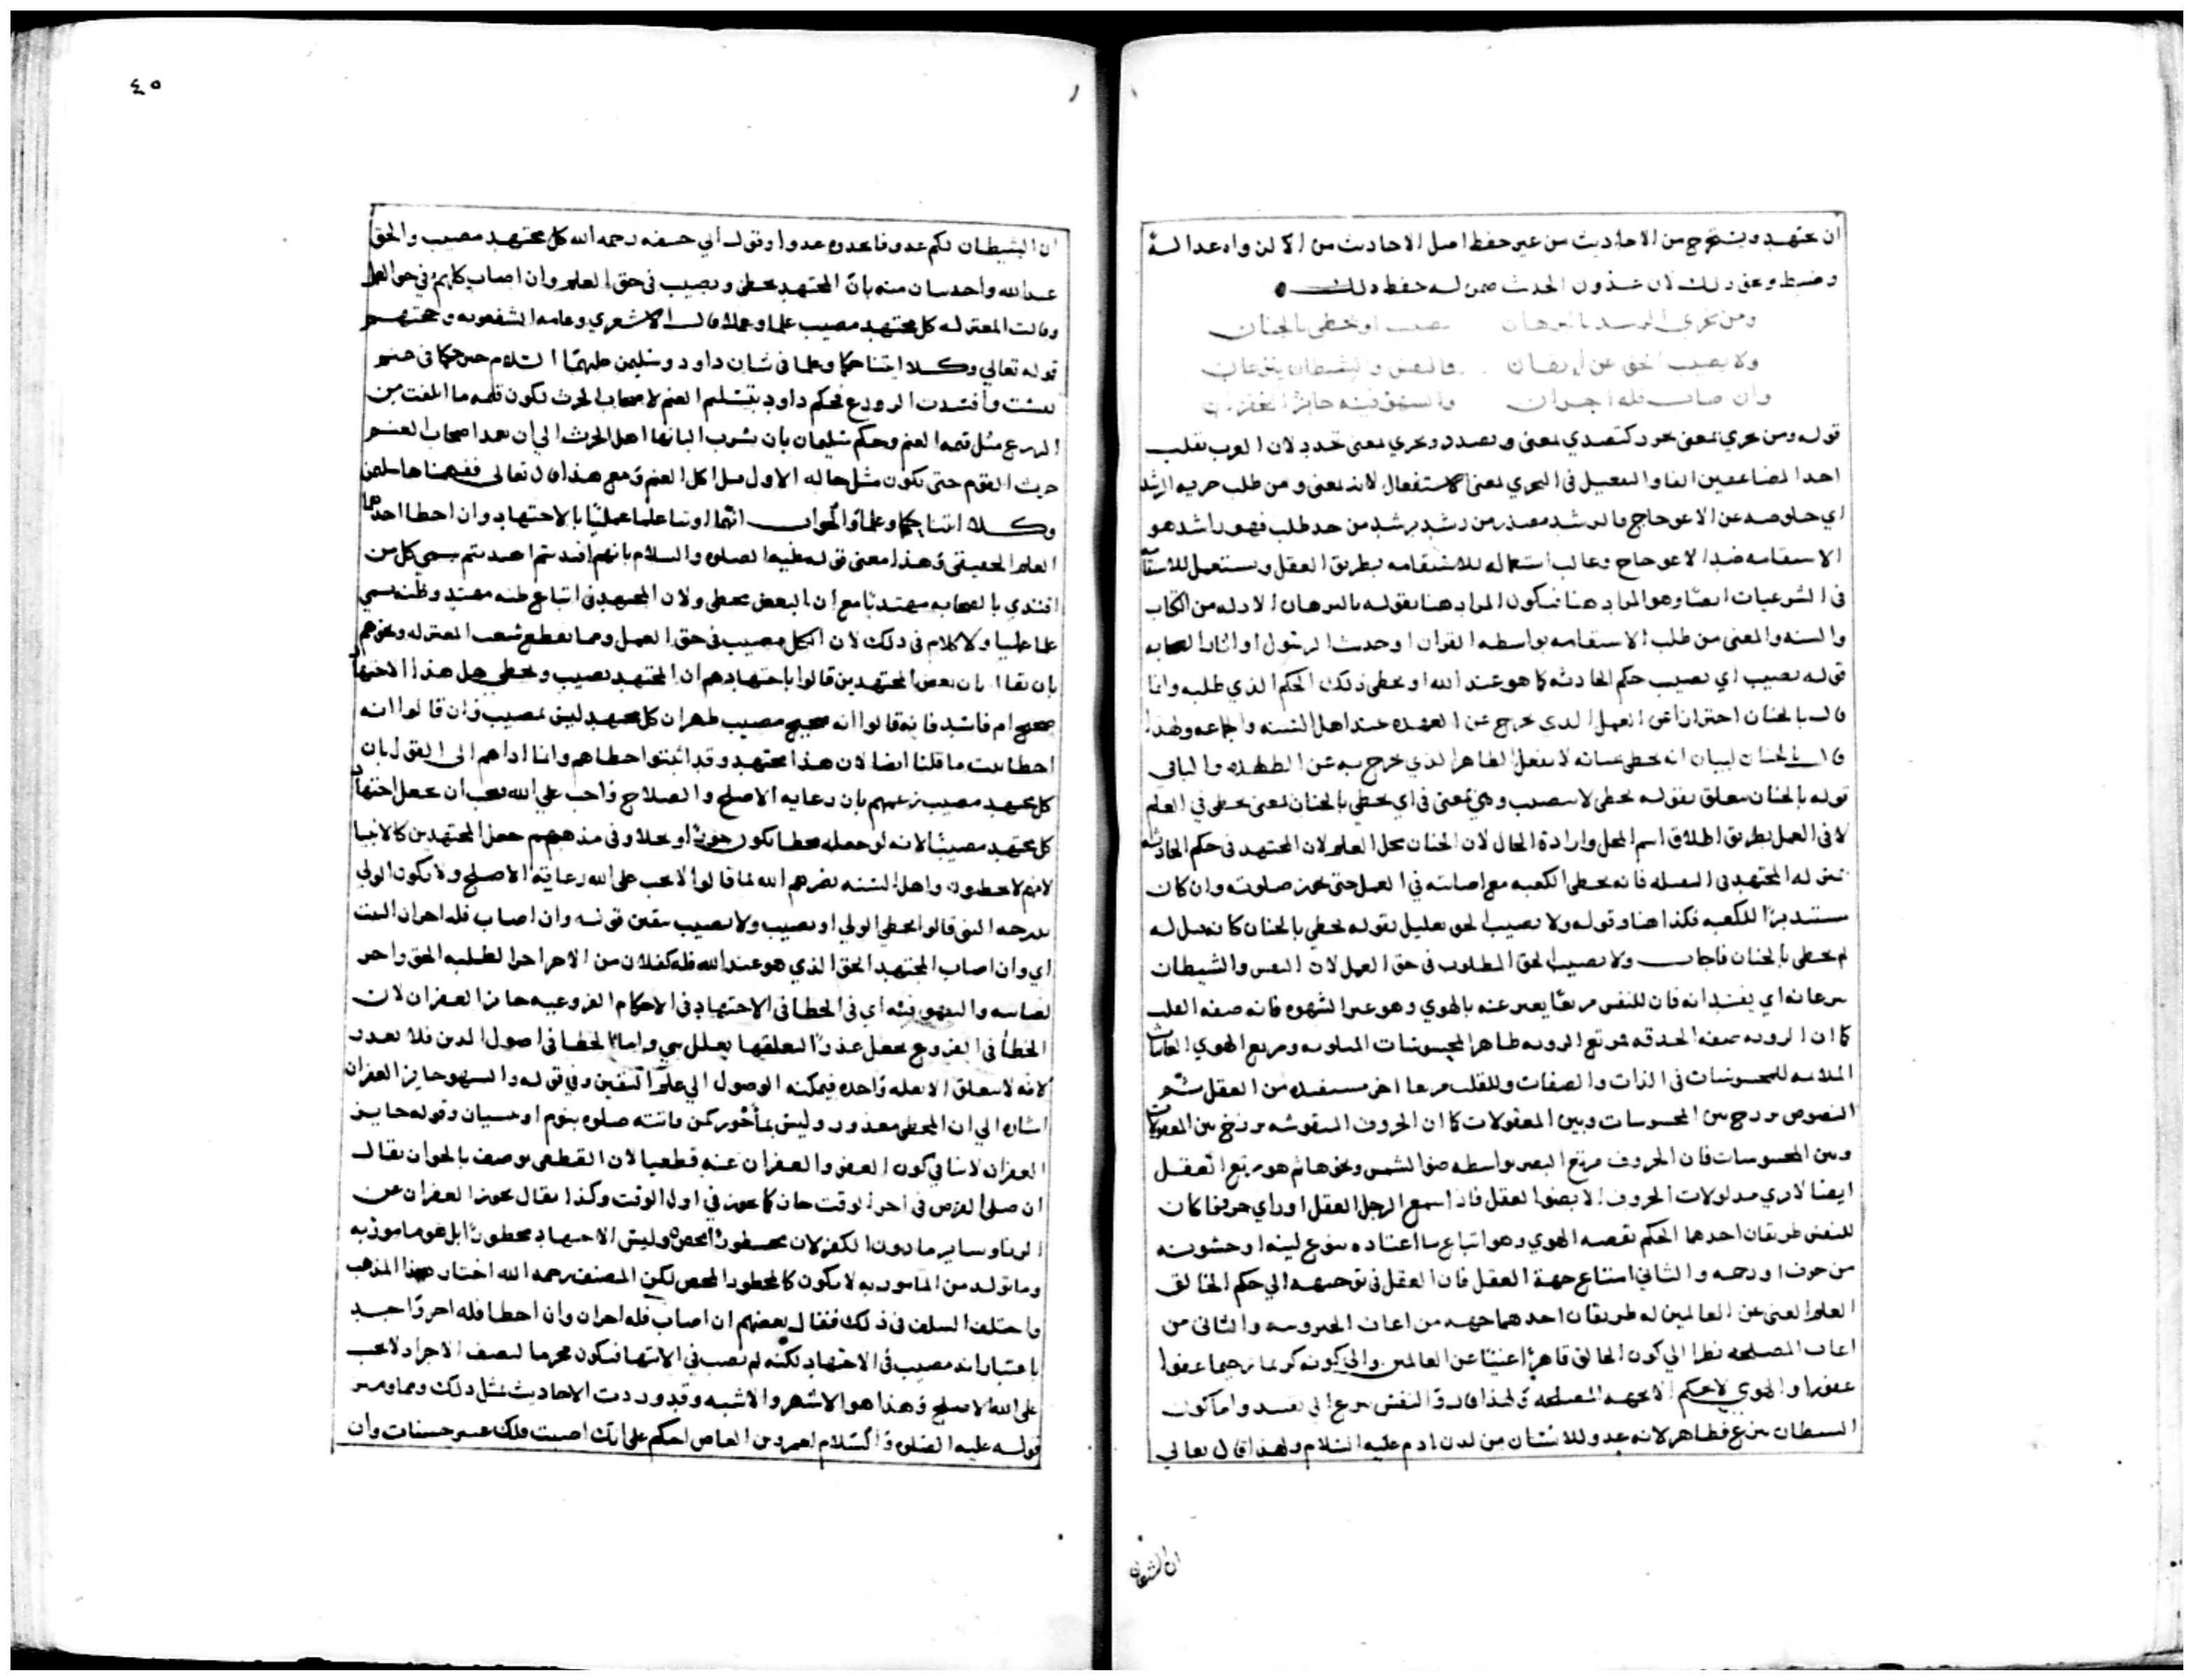 ان يجتهد ويستخرج من الاحاديث من غير حفظ اصل الاحاديث من
وضبط لان الحدث ضمن له حفظ ذلك
ومن تحري الرشد بالبرهان يصيب او يخطي بالجنان
ولا يصيب الحق عن ايقان فالنفس والشيطان ينزعان
وان صاب فله اجران والسهو فيه جائز الغفران
قوله ومن تحري بمعنى تحرر كتصدي بمعنى وتصدد وتحري بمعنى تحدد لان العرب تقلب
احد المضاعفين الفا والتفعيل في التحري بمعنى الاستفعال لانه بمعنى ومن طلب حرية الرشد
اي خلوصه عن الاعوجاج والرشد مصدر من رشد يرشد من حد طلب فهو راشد هو
الاستقامه ضد الاعوجاج وغالب استعماله للاستقامه بطريق العقل ويستعمل للاستقامة
في الشرعيات ايضا وهو المراد هنا فيكون المراد هنا بقوله بالبرهان الادله من الكتاب
والسنه والمعنى من طلب الاستقامه بواسطه القران او حديث الرسول او اثار الصحابه
قوله يصيب اي يصيب حكم الحادثه كما هو عند الله او يخطي ذلك الحكم الذي طلبه وانما
قال بالجنان احترازا عن العمل الذي يخرج عن العهده عند اهل السنه والجماعه ولهذا
قال بالجنان لبيان انه يخطي لا بفعل الظاهر الذي يخرج به عن
قوله بالجنان متعلق بقوله يخطي لا بيصيب وهي بمعنى في اي يخطي بالجنان بمعنى يخطي في العلم
لا في العمل بطريق اطلاق اسم المحل وارادة الحال لان الجنان محل العلم لان المجتهد في حكم الحادثه
بمنزله المجتهد في القبله فانه يخطي الكعبه مع اصابته في العمل حتى تجوز صلوته وان كان
مستدبرا للكعبه فكذا هنا وقوله ولا يصيب الحق تعليل بقوله يخطي بالجنان كانه قيل له
لم يخطي بالجنان فاجاب ولا يصيب الحق المطلوب في حق العمل لان النفس والشيطان
ينزعانه اي يفسدانه فان للنفس مرتعا يعبر عنه بالهوي وهو عين الشهوه فانه صفه القلب
كما ان الرويه صفه الحدقه فمرتع الرويه ظاهر المحسوسات المتلونه ومرتع الهوي
الملائمه للمحسوسات في الذات والصفات وللقلب مرتعا اخر من العقل ثم
النصوص برزخ بين المحسوسات وبين المعقولات كما ان الحروف المنقوشه برزخ بين المعقولات
وبين المحسوسات فان الحروف مرتع البصر بواسطه ضوء الشمس ونحوها ثم هو مرتع العقل
ايضا لا يري مدلولات الحروف الا بضوء العقل فاذا سمع الرجل العقل او راي حروفا كان
للنفس طريقان احدهما الحكم بقصه الهوي وهو اتباع ما اعتاده بنوع لينه او خشونته
من خوف او رحمه والثاني اتباع جهة العقل فان العقل في توجيهه الي حكم الخالق
العلم الغني عن العالمين له طريقان احدهما جهه والثاني من
المصلحه نظرا الي كون الخالق قاهرا غنيا عن العالمين والي كونه كريما رحيما عفوا
غفورا والهوي لا يحكم الا بجهه المصلحه ولهذا قال والنفس ينزع اي يفسد واما كون
الشيطان ينزع فظاهر لانه عدو للانسان من لدن ادم عليه السلام ولهذا قال تعالي
ان الشيطان
٤٥
ان الشيطان لكم عدو فاتخذوه عدوا وقول ابي حنيفه رحمه الله كل مجتهد مصيب والحق
عند الله واحد بيان منه بان المجتهد يخطي ويصيب في حق العلم وان اصاب كلهم في حق العمل
وقالت المعتزله كل مجتهد مصيب علما وعملا قال الاشعري وعامه الشفعويه وحجتهم
قوله تعالي وكلا اتينا حكما وعلما في شان داود وسليمن عليهما السلام حين حكما في غنم
نفشت وافسدت الزرع فحكم داود بتسليم الغنم لاصحاب الحرث لكون قيمه ما اتلفت من
الزرع مثل قيمه الغنم وحكم سليمان بان يشرب البانها اهل الحرث الي ان يعد اصحاب الغنم
حرث القوم حتى تكون مثل حاله الاول قبل اكل الغنم ومع هذا قال تعالى ففهمناها سليمن
وكلا اتينا حكما وعلما والجواب انهما اوتيا علما عمليا بالاجتهاد وان اخطا احدهما
العلم الحقيقي وهذا معنى قوله عليه الصلوه والسلام بايهم اقتديتم اهتديتم يسمي كل من
اقتدي بالصحابه مهتديا مع ان البعض يخطي ولان المجتهد في اتباع ظنه مهتد وظنه يسمي
علما عمليا ولا كلام في ذلك لان الكل مصيب في حق العمل ومما يقطع شعب المعتزله ونحوهم
بان يقال بان بعض المجتهدين قالوا باجتهادهم ان المجتهد يصيب ويخطي هل هذا الاجتهاد
صحيح ام فاسد فانه قالوا انه صحيح مصيب ظهر ان كل مجتهد ليس بمصيب وان قالوا انه
اخطا ثبت ما قلنا ايضا لان هذا مجتهد وقد اثبتوا خطاهم وانما اداهم الى القول بان
كل مجتهد مصيب زعمهم بان رعايه الاصلح والصلاح واجب علي الله فيجب ان يجعل اجتهاد
كل مجتهد مصيبا لانه لو جعله مخطا يكون جورا او بخلا وفي مذهبهم جعل المجتهدين كالانبيا
لانهم لا يخطون واهل السنه نصرهم الله لما قالوا لا يجب على الله رعاية الاصلح ولا يكون الولي
بدرجه النبي قالوا يخطي الولي او يصيب ولا يصيب بيقين قوله وان اصاب فله اجران البيت
اي وان اصاب المجتهد الحق الذي هو عند الله فله كفلان من الاجر اجر لطلبه الحق واجر
لصابته والسهو فيه اي في الخطا في الاجتهاد في الاحكام الفروعيه جائز الغفران لان
الخطأ في الفروع يجعل عذرا لتعلقها بعلل شتي واما الخطا في اصول الدين فلا يعذر
لانه لا يتعلق الا بعله واحده فيمكنه الوصول الي علم اليقين وفي قوله والسهو جايز الغفران
اشاره الي ان المخطي معذور وليس بمأجور كمن فاتته صلوه بنوم او نسيان وقوله جايز
الغفران لا ينافي كون العفو والغفران عنه قطعيا لان القطعي يوصف بالجواز يقال
ان صلى الفرض في اخر الوقت جاز كما يجوز في اول الوقت وكذا يقال يجوز الغفران عن
الزنا وساير ما دون الكفر لان محض وليس الاجتهاد محظورا بل هو مامور به
وما تولد من المامور به لا يكون كالمحظور المحض لكن المصنف رحمه الله اختار هذا المذهب
واختلف السلف في ذلك فقال بعضهم ان اصاب فله اجران وان اخطا فله اجر واحد
باعتبار انه مصيب في الاجتهاد لكنه لم يصب في الانتها فيكون محرما لنصف الاجر اذ لا يجب
على الله الاصلح وهذا هو الاشهر والاشبه وقد وردت الاحاديث بمثل ذلك
قوله عليه الصلوه والسلام لعمرو بن العاص احكم على انك اصبت فلك عشر حسنات وان